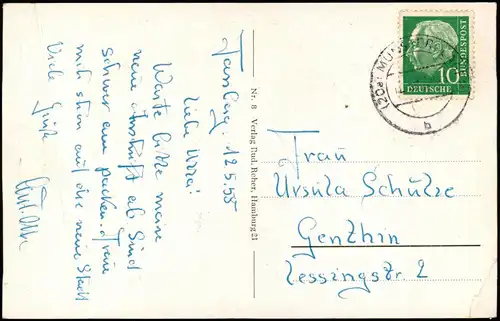 Fassberg, 12.5.55
Liebe Ursa!
Warte bitte meine
neue Anschrift ab. Sind
schwer am packen. Freue
mich schon auf die neue Stadt
Viele Grüße
Nr. 8 Verlag Rud. Reher, Hamburg 21
(20a) MUNSTER
b
10
DEUTSCHE
BUNDESPOST
Frau
Ursula Schulze
Genthin
Lessingstr. 2